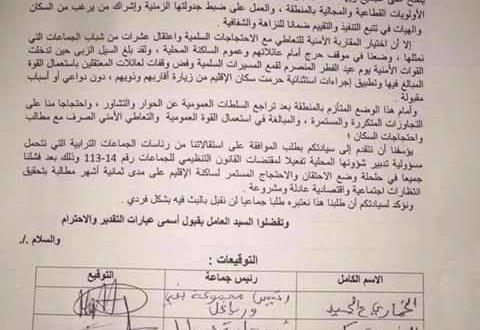 الأولويات القطاعية والمجالية بالمنطقة ، والعمل على ضبط جدولتها الزمنية وإشراك من يرغب من السكان
والهيات في تتبع التنفيذ والتقييم ضمانا للنزاهة والشفافية .
إلا أن اختيار المقاربة الأمنية للتعاطي مع الاحتجاجات السلمية واعتقال عشرات من شباب الجماعات التي
نمثلها ، وضعنا في موقف حرج أمام عائلاتهم وعموم الساكنة المحلية ، ولقد بلغ السيل الزبى حين تدخلت
القوات الأمنية يوم عيد الفطر المنصرم لقمع المسيرات السلمية وفض وقفات لعائلات المعتقلين باستعمال القوة
المبالغ فيها وتطبيق إجراءات استثنائية حرمت سكان الإقليم من زيارة أقاربهم وذويهم ، دون دواعي أو أسباب
مقبولة .
وأمام هذا الوضع المتأزم بالمنطقة بعد تراجع السلطات العمومية عن الحوار والتشاور ، واحتجاجا منا على
التجاوزات المتكررة والمستمرة ، والمبالغة في استعمال القوة العمومية والتعاطي الأمني الصرف مع مطالب
واحتجاجات السكان ؛
يؤسفنا أن نتقدم إلى سيادتكم بطلب الموافقة على استقالاتنا من رئاسات الجماعات الترابية التي نتحمل
مسؤولية تدبير شؤونها المحلية تفعيلا لمقتضات القانون التنظيمي للجماعات رقم 14-113 وذلك بعد فشلنا
جميعا في حلحلة وضع الاحتقان والاحتجاج المستمر لساكنة الإقليم على مدى ثمانية أشهر مطالبة بتحقيق
انتظارات اجتماعية واقتصادية عادلة ومشروعة .
ونؤكد لسيادتكم أن طلبنا هذا نعتبره طلبا جماعيا لن نقبل بالبث فيه بشكل فردي .
وتفضلوا السيد العامل بقبول أسمى عبارات التقدير والاحترام
والسلام ./.
التوقيعات :
الاسم الكامل رئيس جماعة التوقيع